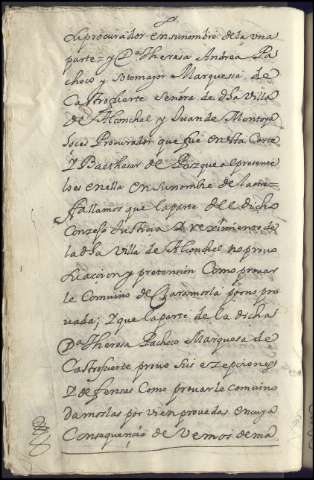 su procurador en su nombre de la una
parte = y Dª Theresa Andrea Pa
checo y Sotomayor Marquessa de
Castrofuerte señora de dha Villa
de Alconchel y Juan de Montoya
Procurador que fue en esta Corte
y Balthasar de que al presente
lo es en ella en su nombre de la otra =
fallamos que la parte del dicho
Conzejo Justicia y Rexidores de
la dha Villa de Alconchel no provo
su acion y pretension Como provar
le Comvino damosla por no pro
vada; y que la parte de la dicha
Dª Theresa Pacheco Marquesa de
Castrofuerte provo sus eszepciones
y defensas Como provarle comvino
damoslas por vien provadas en cuya
Consequencia devemos de ma